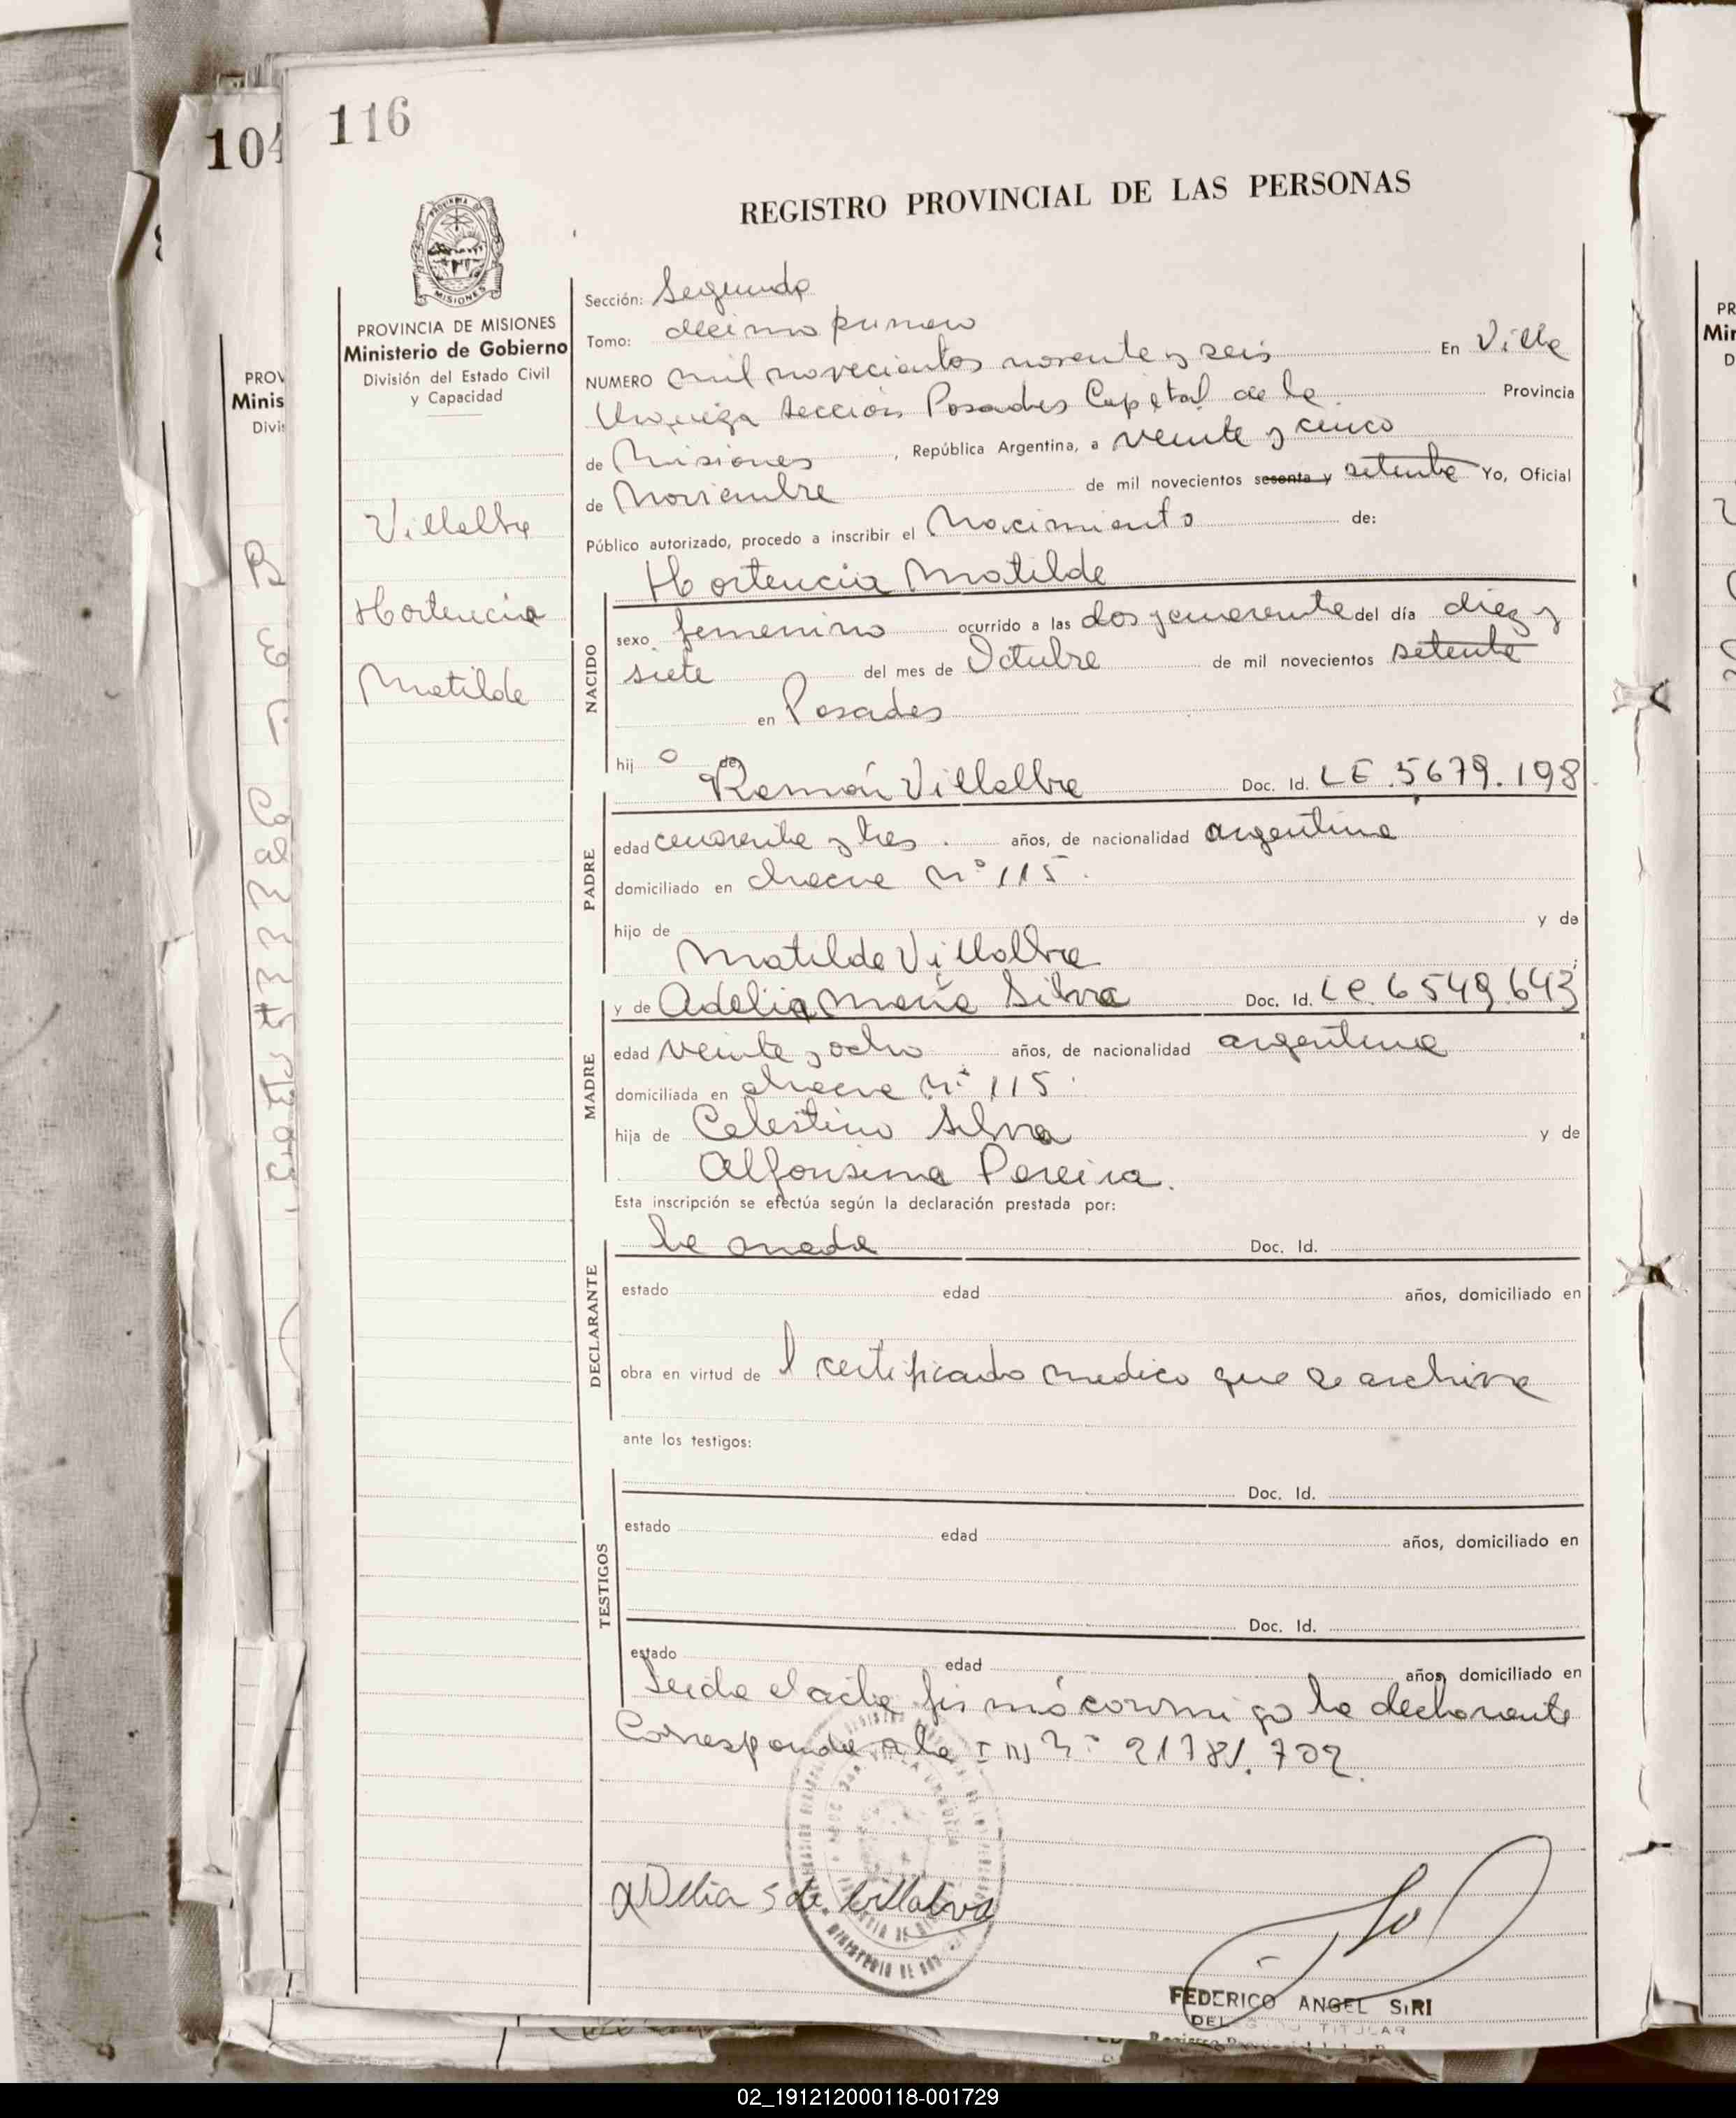 116
104
REGISTRO PROVINCIAL DE LAS PERSONAS
MISIONES
PROVINCIA DE MISIONES
Ministerio de Gobierno
División del Estado Civil
y Capacidad
Villalba
Hortencia
Matilde
Sección: Segunda
Tomo: decimo primero
NUMERO mil novecientos noventa y seis En Villa
Urquiza Sección Posadas Capital de la Provincia
de Misiones, República Argentina, a veinte y cinco
de Noviembre de mil novecientos sesenta y setenta Yo, Oficial
Público autorizado, procedo a inscribir el Nacimiento de:
Hortencia Matilde
NACIDO
sexo femenino ocurrido a las dos y cuarenta del día diez y
siete del mes de Octubre de mil novecientos setenta
en Posadas
hij o de
Ramón Villalba Doc. Id. LE.5679.198
PADRE
edad cuarenta y tres años, de nacionalidad argentina
domiciliado en chacra Nº 115.
hijo de y de
Matilde Villalba
MADRE
y de Adelia María Silva Doc. Id. LC.6549.643
edad veinte y ocho años, de nacionalidad argentina
domiciliada en chacra Nº 115.
hija de Celestino Silva y de
Alfonsina Pereira.
Esta inscripción se efectúa según la declaración prestada por:
DECLARANTE
la madre Doc. Id.
estado edad años, domiciliado en
obra en virtud de l certificado medico que se archiva
ante los testigos:
TESTIGOS
Doc. Id.
estado edad años, domiciliado en
Doc. Id.
estado edad años, domiciliado en
Leida el acta firmó conmigo la declarante
Corresponde a la IN Nº 21781.702.
aDelia S de Villalva
FEDERICO ANGEL SIRI
TITULAR
02_191212000118-001729